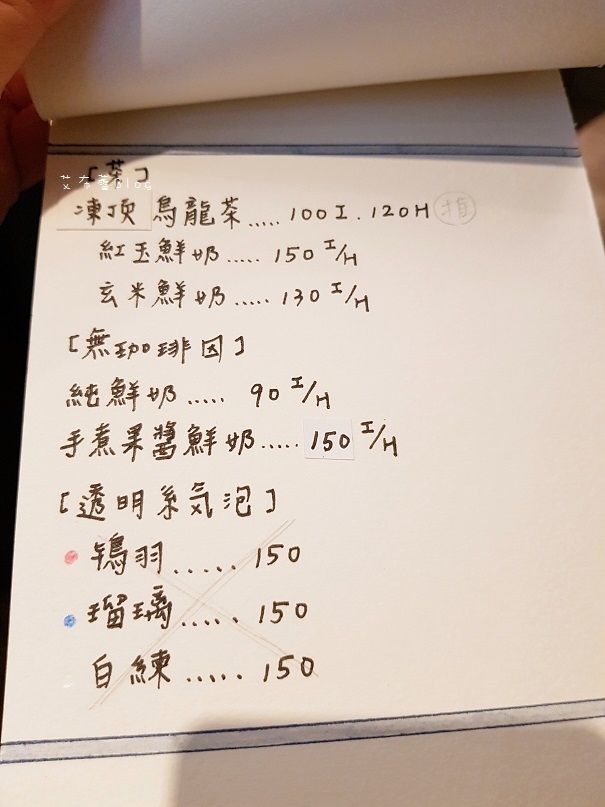 [茶]
艾方莖Blog
凍頂烏龍茶.....100I.120H 推
紅玉鮮奶.....150 I/H
玄米鮮奶.....130 I/H
[無珈琲因]
純鮮奶.....90 I/H
手煮果醬鮮奶.....150 I/H
[透明系気泡]
鴇羽.....150
瑠璃.....150
白練.....150